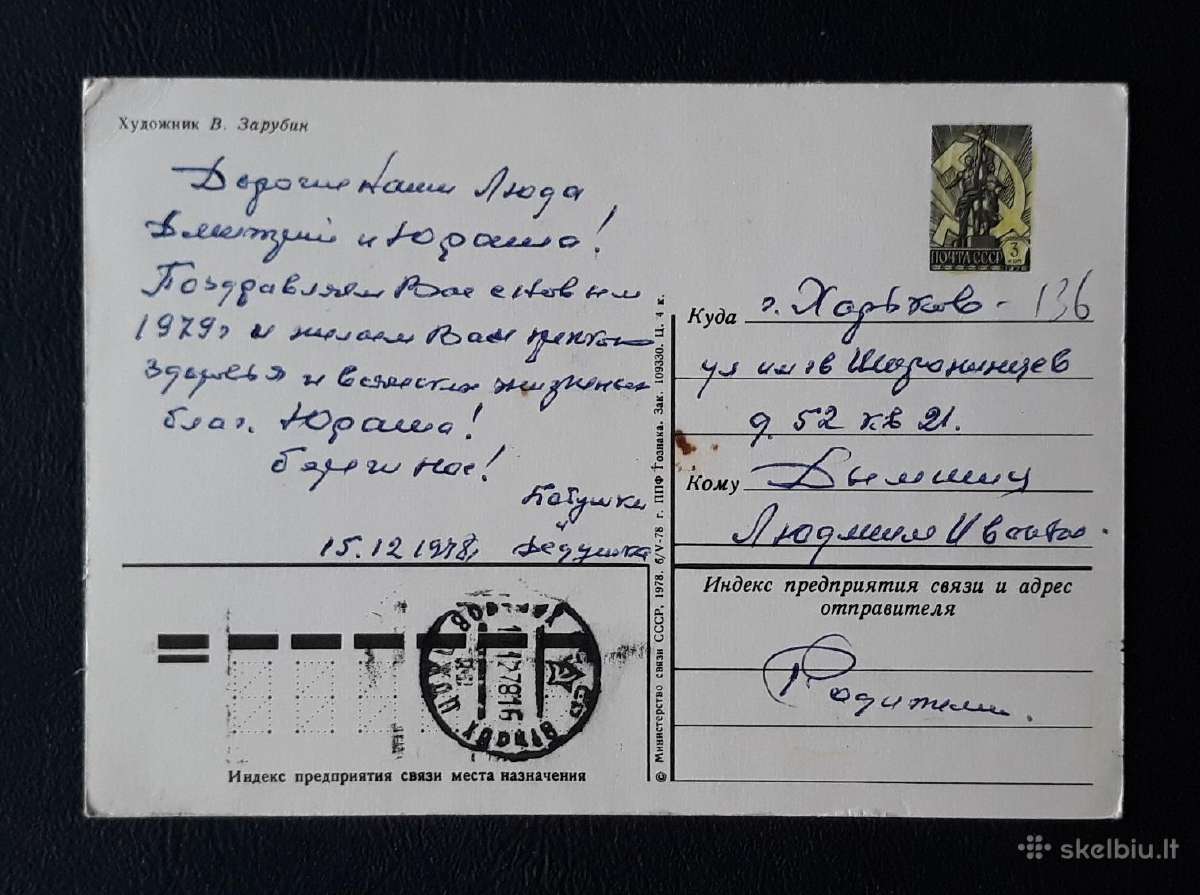 Художник В. Зарубин
Дорогие наши Люда
Дмитрий и Юраша!
Поздравляем Вас с новым
1979г и желаем Вам крепкого
здоровья и всяческих жизненых
благ. Юраша!
береги нас!
Бабушка
и
15.12 1978г Дедушка
ПОЧТА СССР 3 КОП
Куда г. Харьков - 136
ул им гв Широнинцев
д. 52 кв 21.
Кому Дымшиц
Людмиле Иван
Индекс предприятия связи и адрес
отправителя
Родители.
© Министерство связи СССР, 1978. 6/V-78 г. ППФ Гознака. Зак. 109330. Ц. 4 к.
ХАРЬКОВ
Индекс предприятия связи места назначения
skelbiu.lt